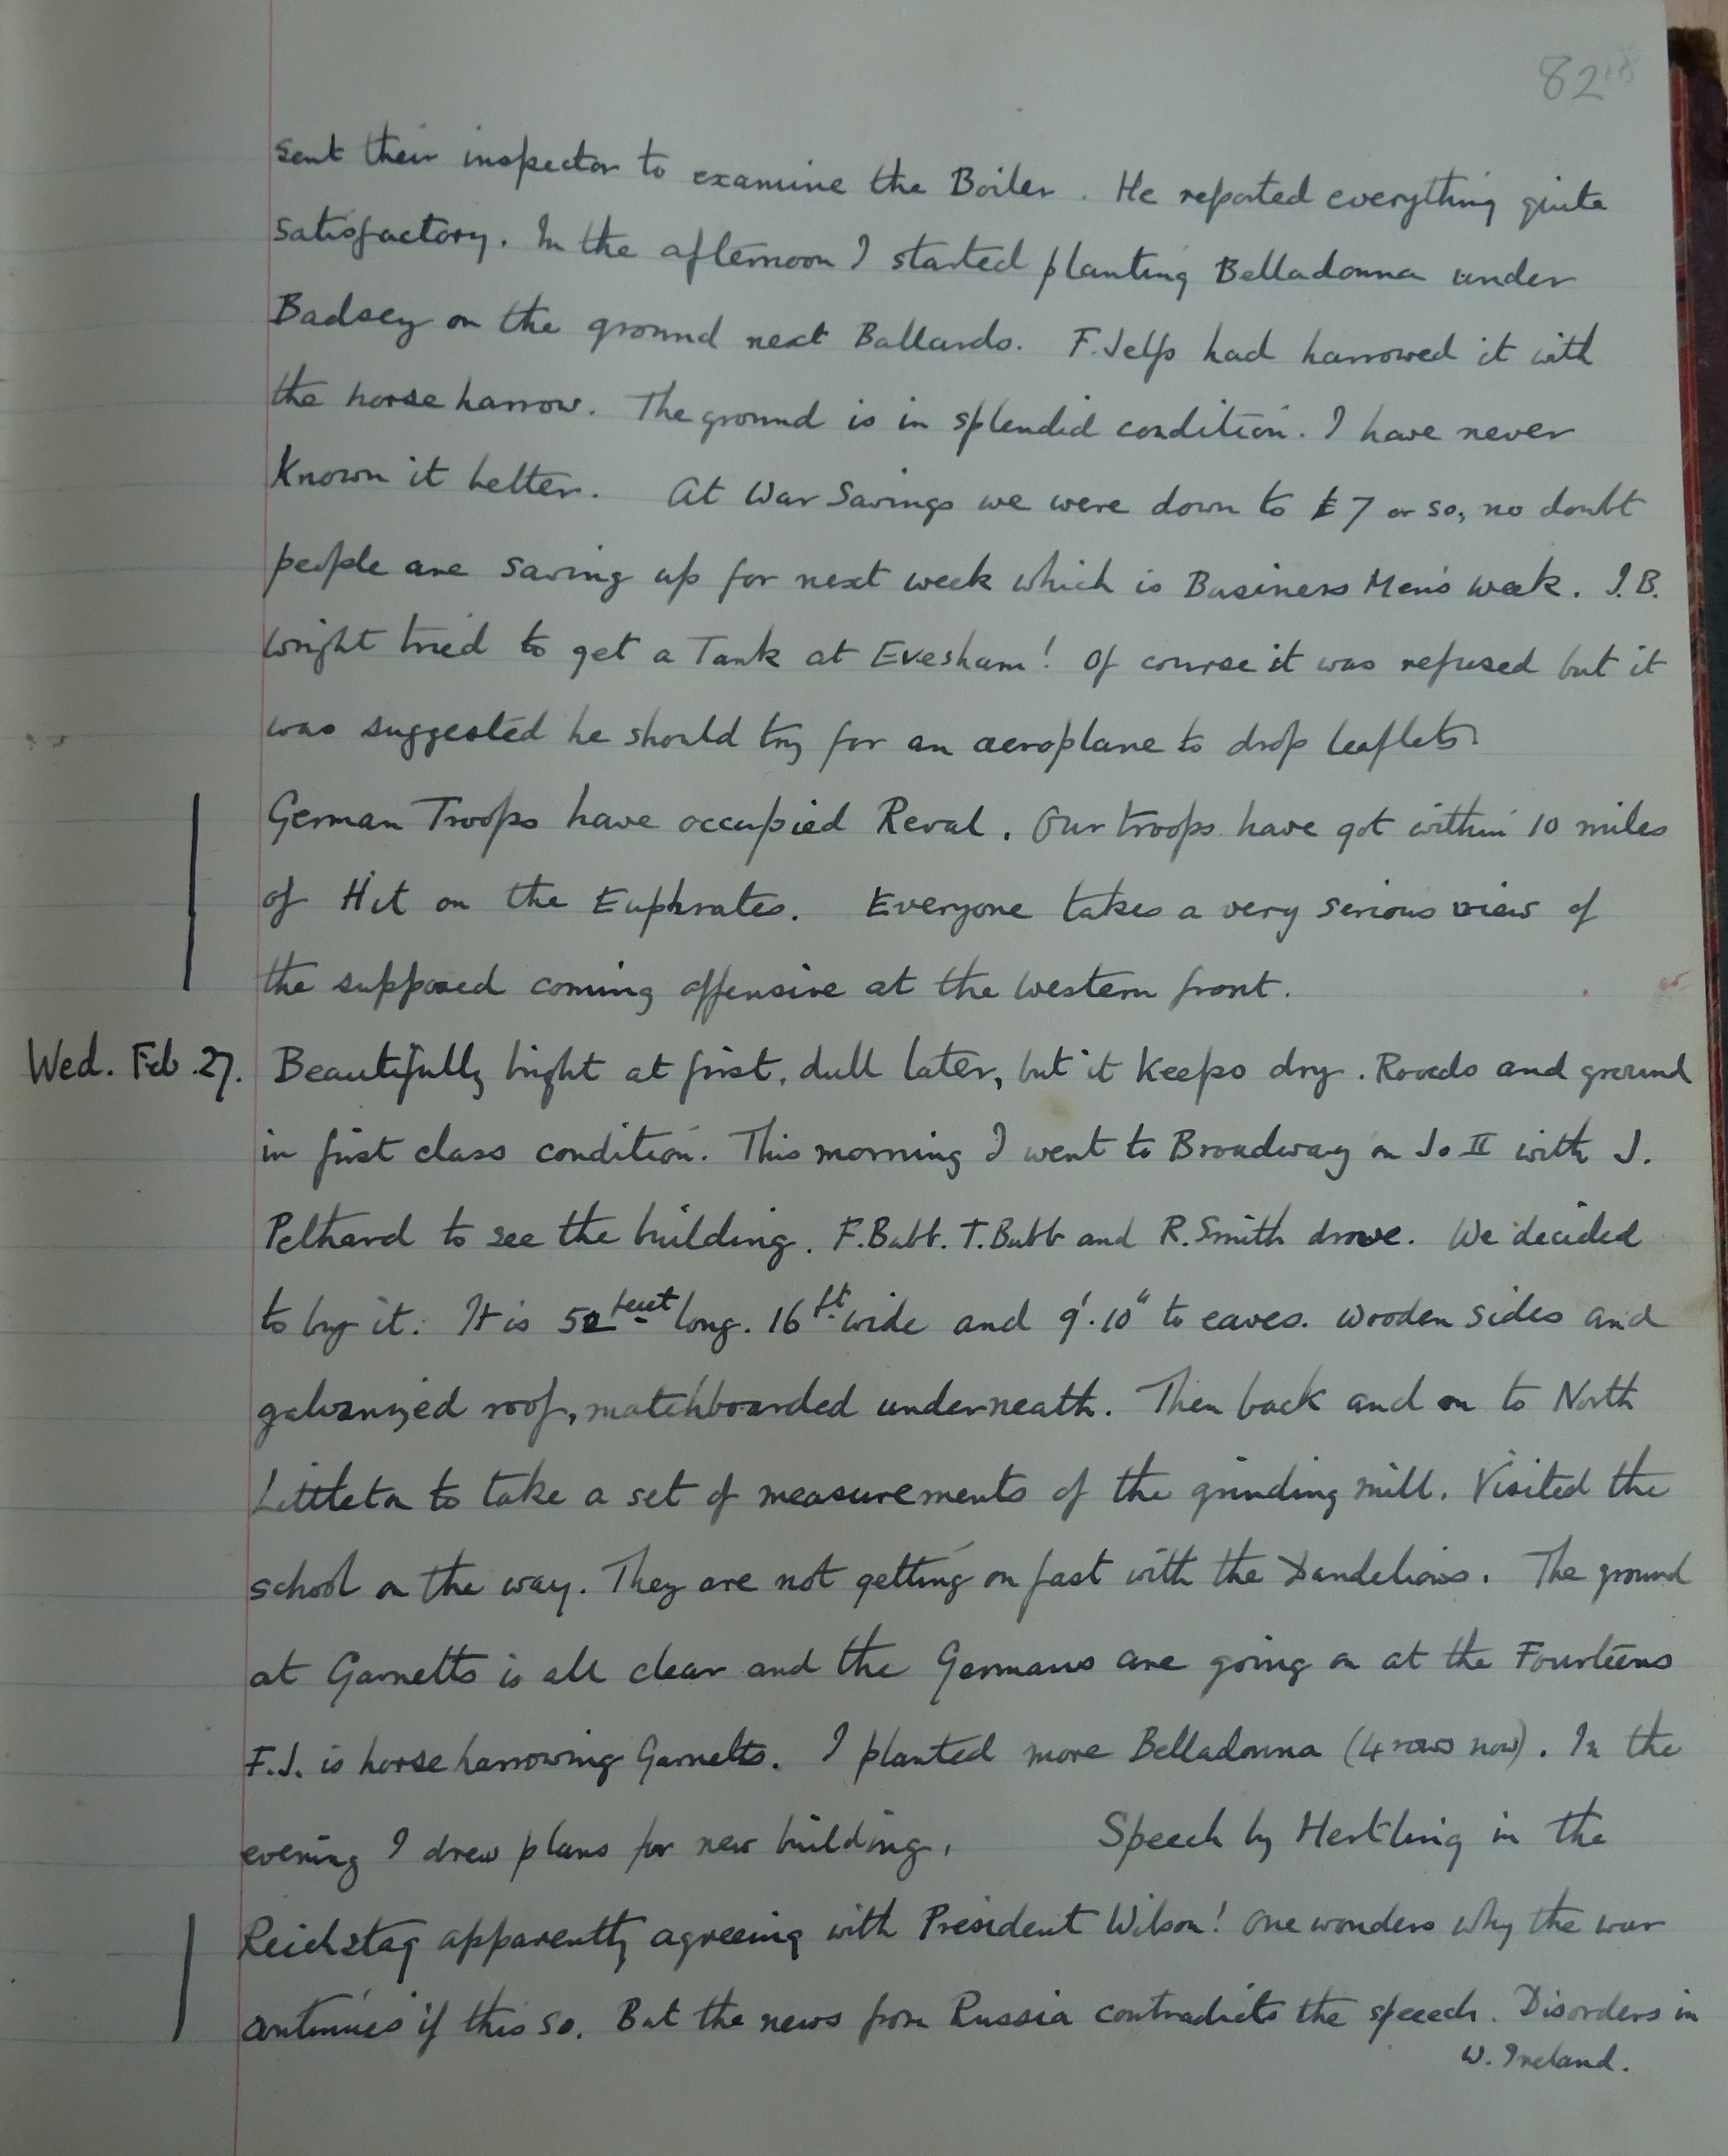 82
sent their inspector to examine the Boiler. He reported everything quite
satisfactory. In the afternoon I started planting Belladonna under
Badsey on the ground next Ballards. F. Jelfs had harrowed it with
the horse harrow. The ground is in splendid condition. I have never
known it better. At War Savings we were down to £7 or so, no doubt
people are saving up for next week which is Business Men's week. J.B.
Wright tried to get a Tank at Evesham! Of course it was refused but it
was suggested he should try for an aeroplane to drop leaflets.
German Troops have occupied Reval. Our troops have got within 10 miles
of Hit on the Euphrates. Everyone takes a very serious view of
the supposed coming offensive at the western front.
Wed. Feb. 27. Beautifully bright at first, dull later, but it keeps dry. Roads and ground
in first class condition. This morning I went to Broadway on Jo II with J.
Pethard to see the building. F. Butt. T. Butt and R. Smith drove. We decided
to buy it. It is 52 feet long. 16 ft. wide and 9'.10" to eaves. Wooden sides and
galvanized roof, matchboarded underneath. Then back and on to North
Littleton to take a set of measurements of the grinding mill. Visited the
school on the way. They are not getting on fast with the Dandelions. The ground
at Garnetts is all clear and the Germans are going on at the Fourteens
F.J. is horse harrowing Garnetts. I planted more Belladonna (4 rows now). In the
evening I drew plans for new building. Speech by Hertling in the
Reichstag apparently agreeing with President Wilson! One wonders why the war
continues if this so. But the news from Russia contradicts the speech. Disorders in
W. Ireland.